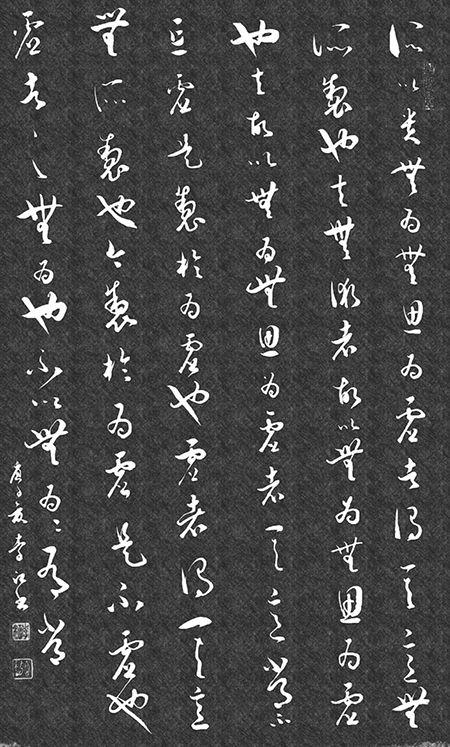 所以貴無為無思為虛者謂其意無
所製也夫無術者故以無為無思為虛
也夫故以無為無思為虛者其意常不
忘虛是製於為虛也虛者謂其意
無所製也今製於為虛是不虛也
虛者之無為也不以無為為有常
庚子夏李